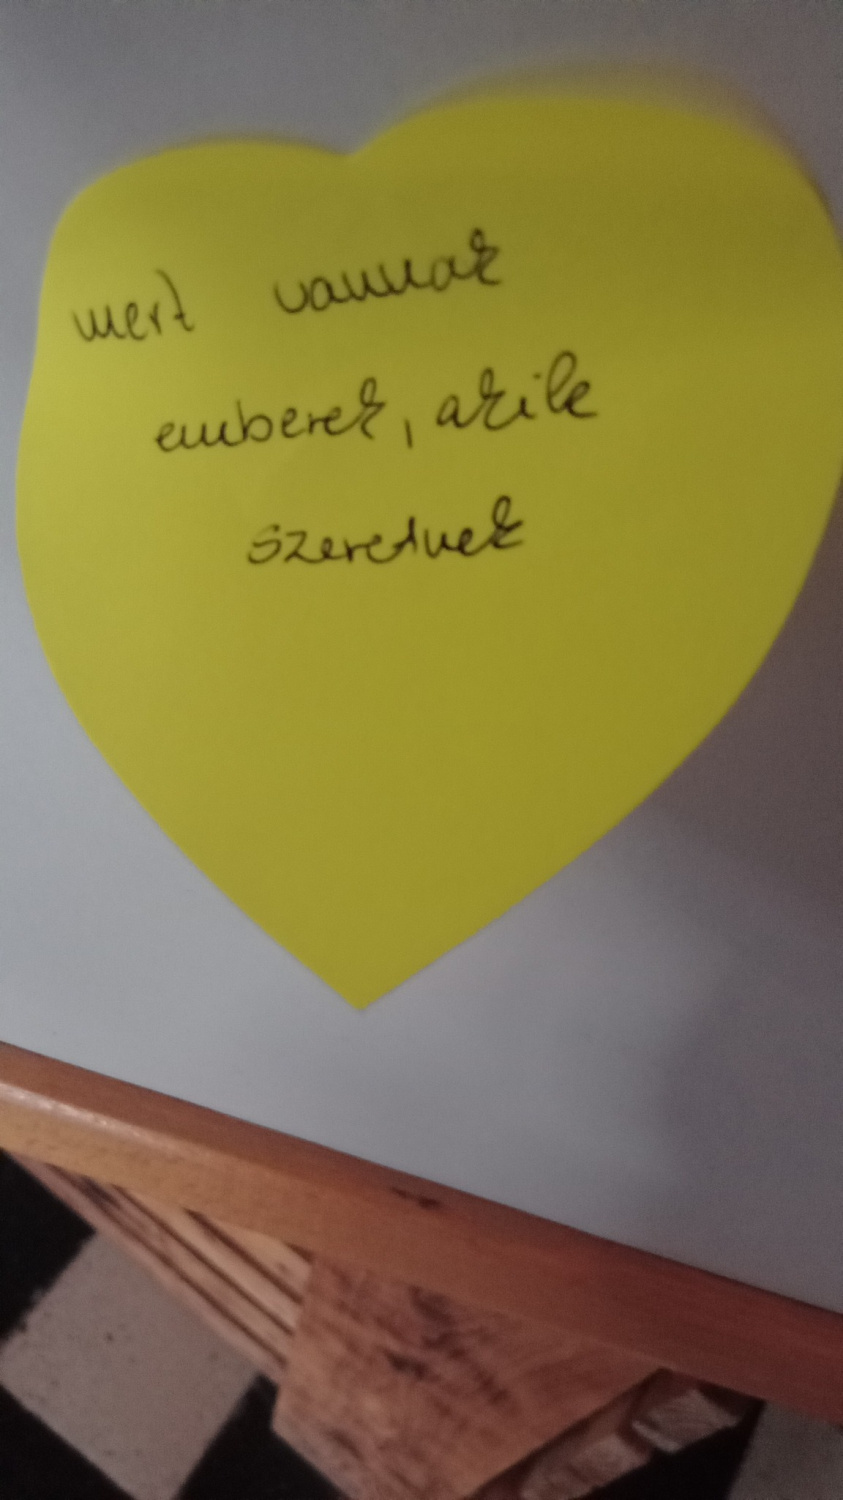 mert vannak
emberek, akik
szeretnek